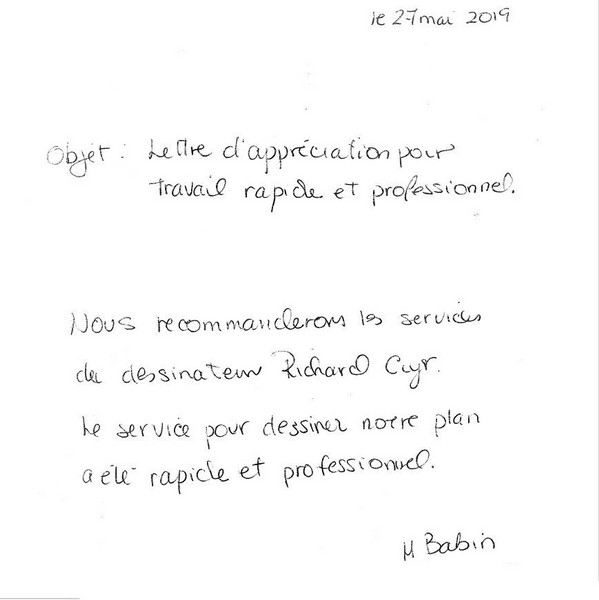 le 27 mai 2019
Objet : Lettre d'appréciation pour
travail rapide et professionnel.
Nous recommanderons les services
du dessinateur Richard Cyr.
Le service pour dessiner notre plan
a été rapide et professionnel.
M Babin